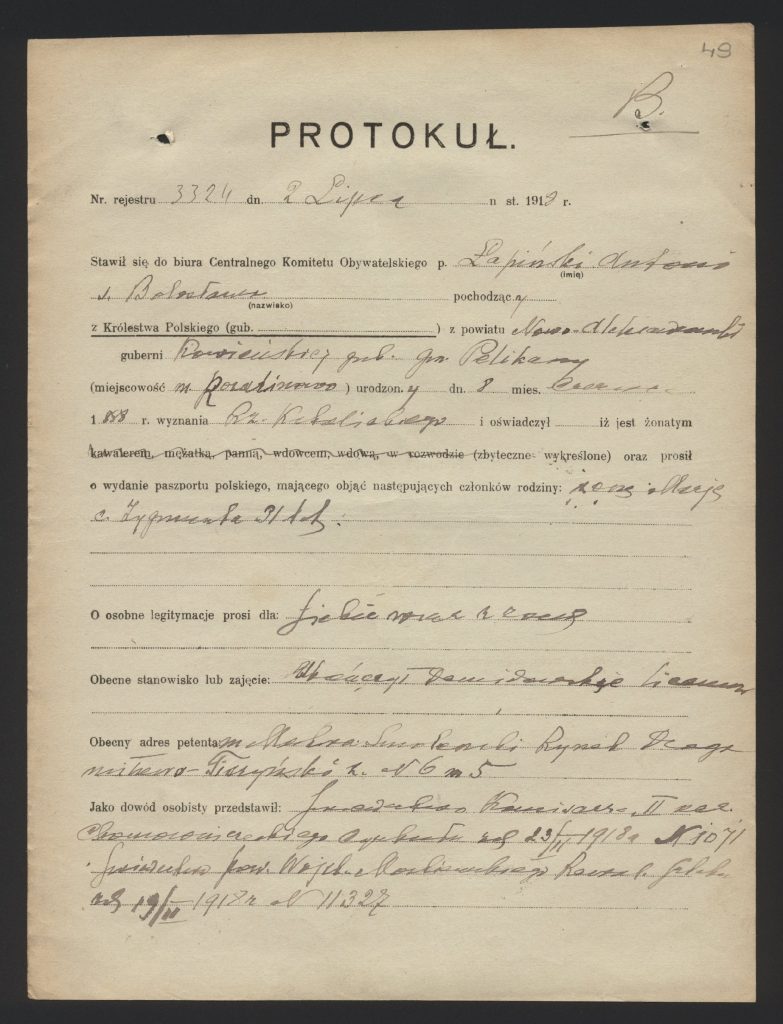 49
B.
PROTOKUŁ.
Nr. rejestru 3324 dn. 2 Lipca n st. 1918 r.
Stawił się do biura Centralnego Komitetu Obywatelskiego p. Łapiński Antoni
(imię)
s. Bolesława pochodząc y
(nazwisko)
z Królestwa Polskiego (gub. ) z powiatu Nowo-Aleksandrowski
guberni Kowieńskiej gub. gm. Pelikany
(miejscowość m. ) urodzon y dn. 8 mies. Czerwca
1888 r. wyznania Rz. Katolickiego i oświadczył iż jest żonatym
kawalerem, mężatką, panną, wdowcem, wdową, w rozwodzie (zbyteczne wykreślone) oraz prosił
o wydanie paszportu polskiego, mającego objąć następujących członków rodziny: żonę Marję
c. Zygmunta 31 lat.
O osobne legitymacje prosi dla: siebie wraz z żoną
Obecne stanowisko lub zajęcie: Ukończył
Obecny adres petenta: m. Moskwa Smoleński Rynek
N 6 m 5
Jako dowód osobisty przedstawił: Komisarza II
od 23/II 1918 r N 1071
pow. Wojsk.
od 19/II 1918 r N 11327